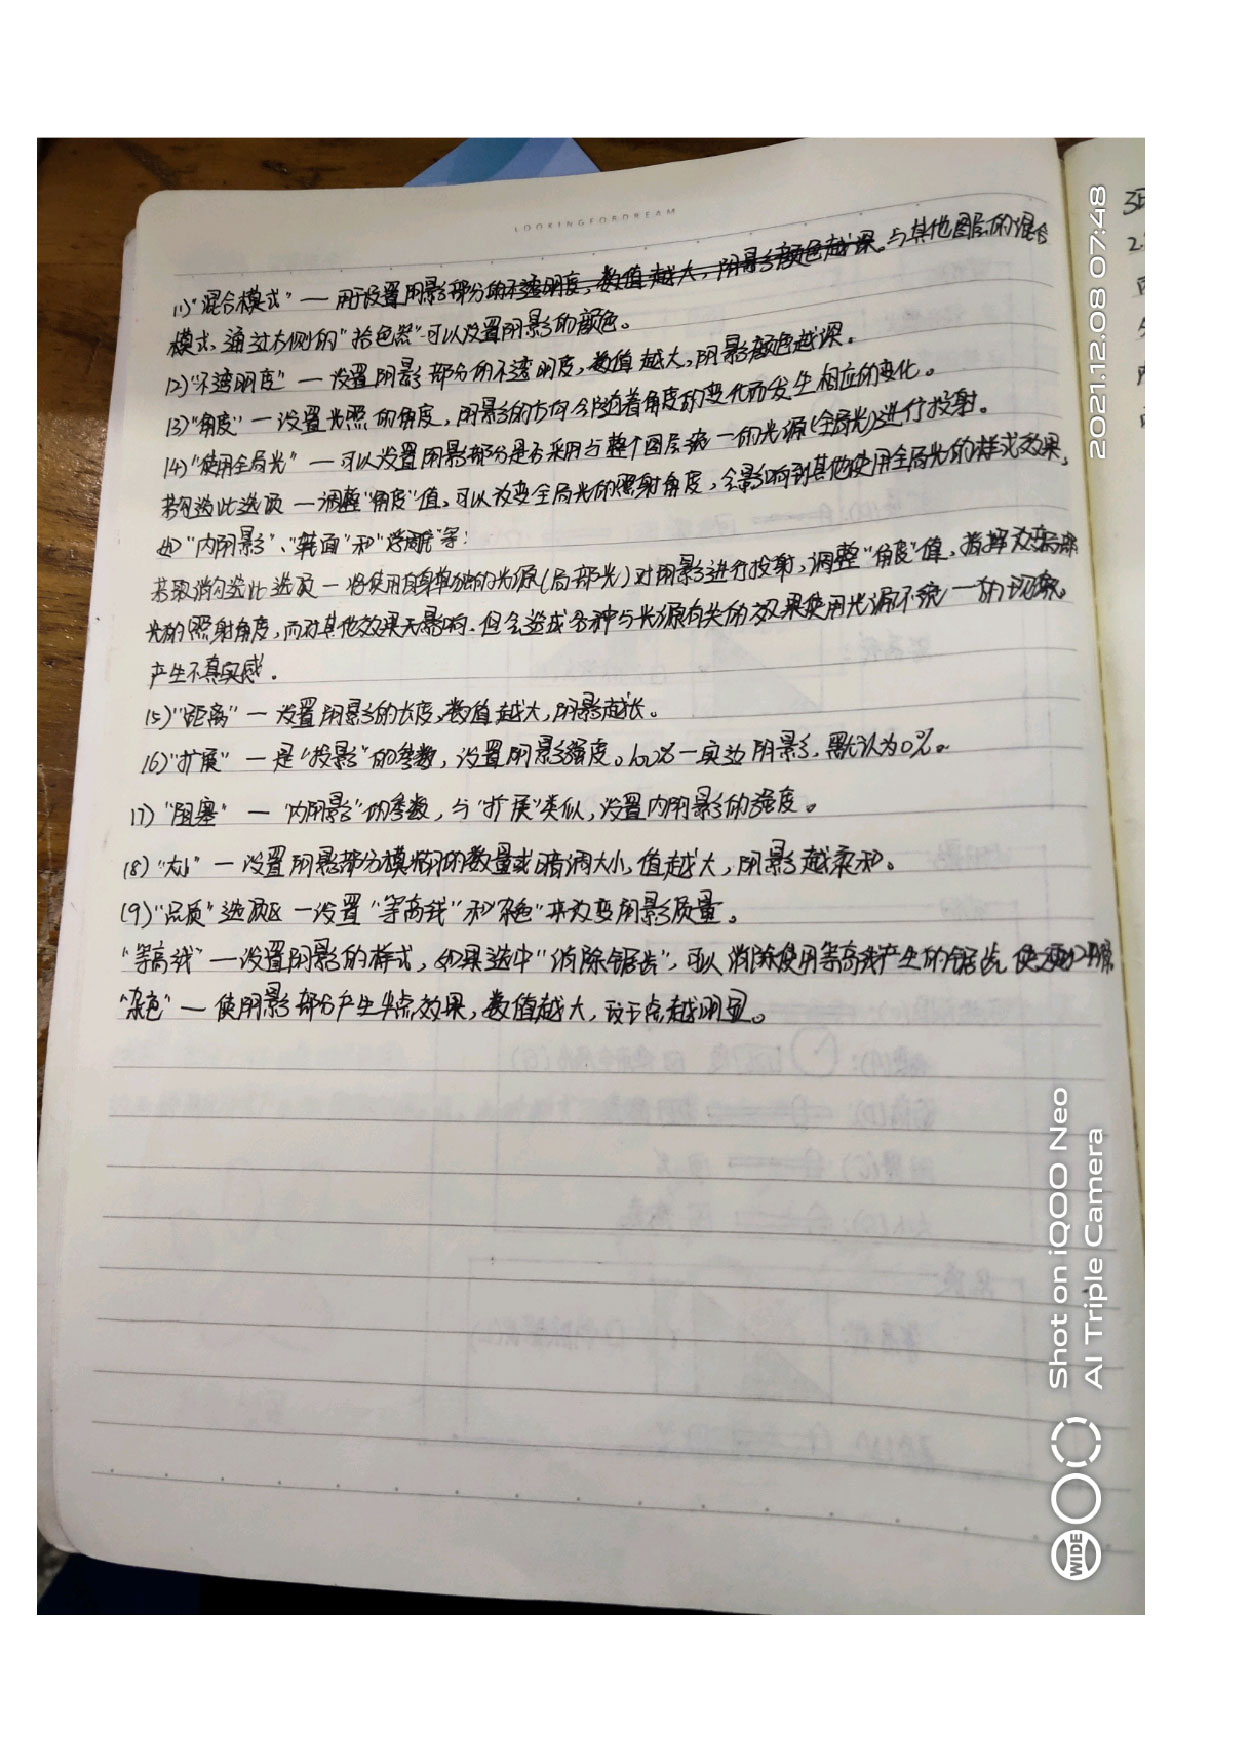 LOOKINGFORDREAM
(1)"混合模式" — 用于设置阴影部分的不透明度，数值越大，阴影颜色越深。与其他图层的混合
模式、通过右侧的"拾色器"可以设置阴影的颜色。
(2)"不透明度" — 设置阴影部分的不透明度，数值越大，阴影颜色越深。
(3)"角度" — 设置光照的角度，阴影的方向会随着角度的变化而发生相应的变化。
(4)"使用全局光" — 可以设置阴影部分是否采用与整个图层统一的光源(全局光)进行投射。
若勾选此选项 — 调整"角度"值，可以改变全局光的照射角度，会影响到其他使用全局光的样式效果，
如"内阴影"、"斜面"和"浮雕"等；
若取消勾选此选项 — 将使用自身单独的光源(局部光)对阴影进行投射，调整"角度"值，改变局部
光的照射角度，而对其他效果无影响，但会造成各种与光源有关的效果使用光源不统一的现象。
产生不真实感。
(5)"距离" — 设置阴影的长度，数值越大，阴影越长。
(6)"扩展" — 是"投影"的参数，设置阴影强度。100%—实边阴影，默认为0%。
(7)"阻塞" — "内阴影"的参数，与"扩展"类似，设置内阴影的强度。
(8)"大小" — 设置阴影部分模糊的数量或暗调大小，值越大，阴影越柔和。
(9)"品质"选项区 — 设置"等高线"和"杂色"来改变阴影质量。
"等高线" — 设置阴影的样式，如果选中"消除锯齿"，可以消除使用等高线产生的锯齿，使之
"杂色" — 使阴影部分产生半点效果，数值越大，点越明显。
2021.12.08 07:48
Shot on iQOO Neo
AI Triple Camera
WIDE